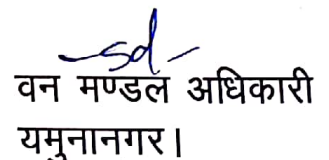 -sd-
वन मण्डल अधिकारी
यमुनानगर।